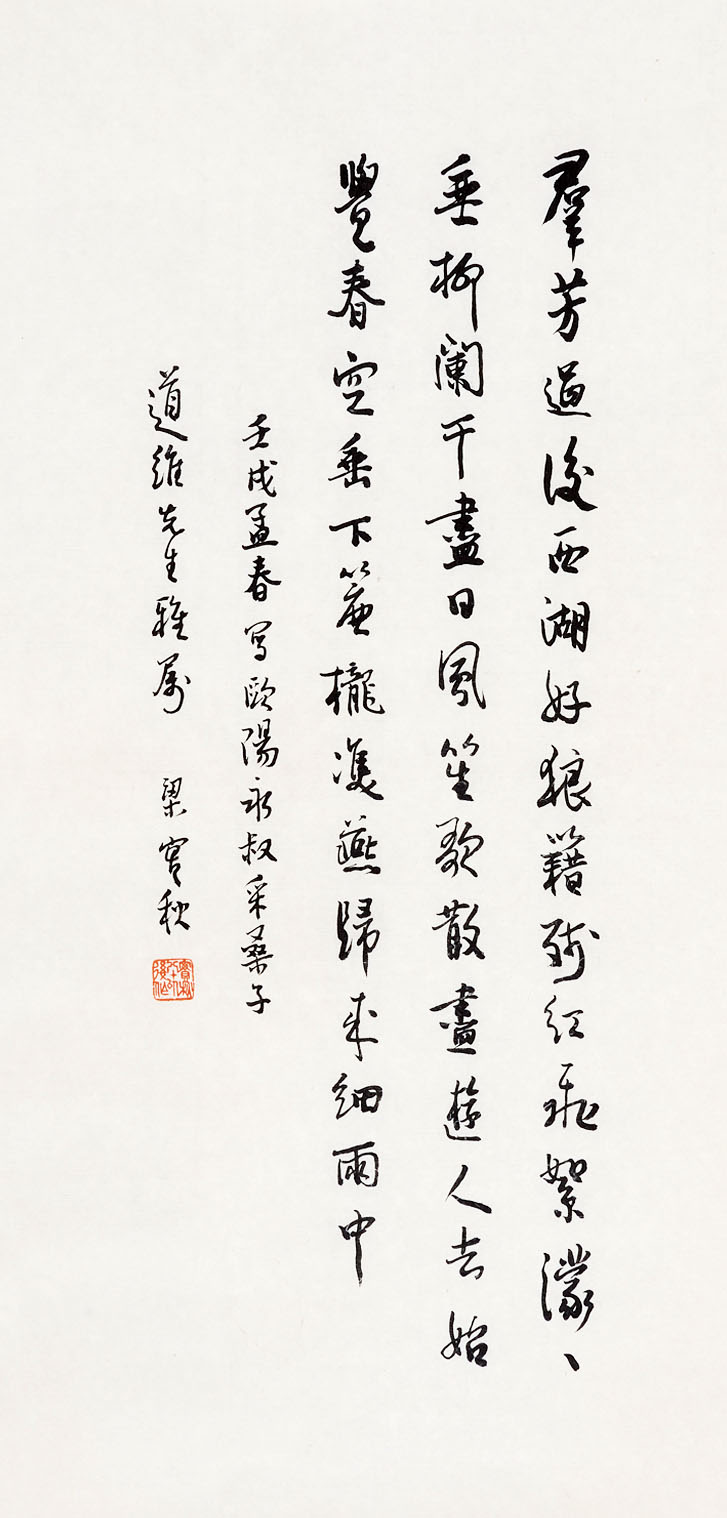 羣芳過後西湖好狼籍殘紅飛絮濛、
垂柳闌干盡日風笙歌散盡遊人去始
覺春空垂下簾櫳雙燕歸來細雨中
壬戌孟春寫歐陽永叔采桑子
道維先生雅屬 梁實秋